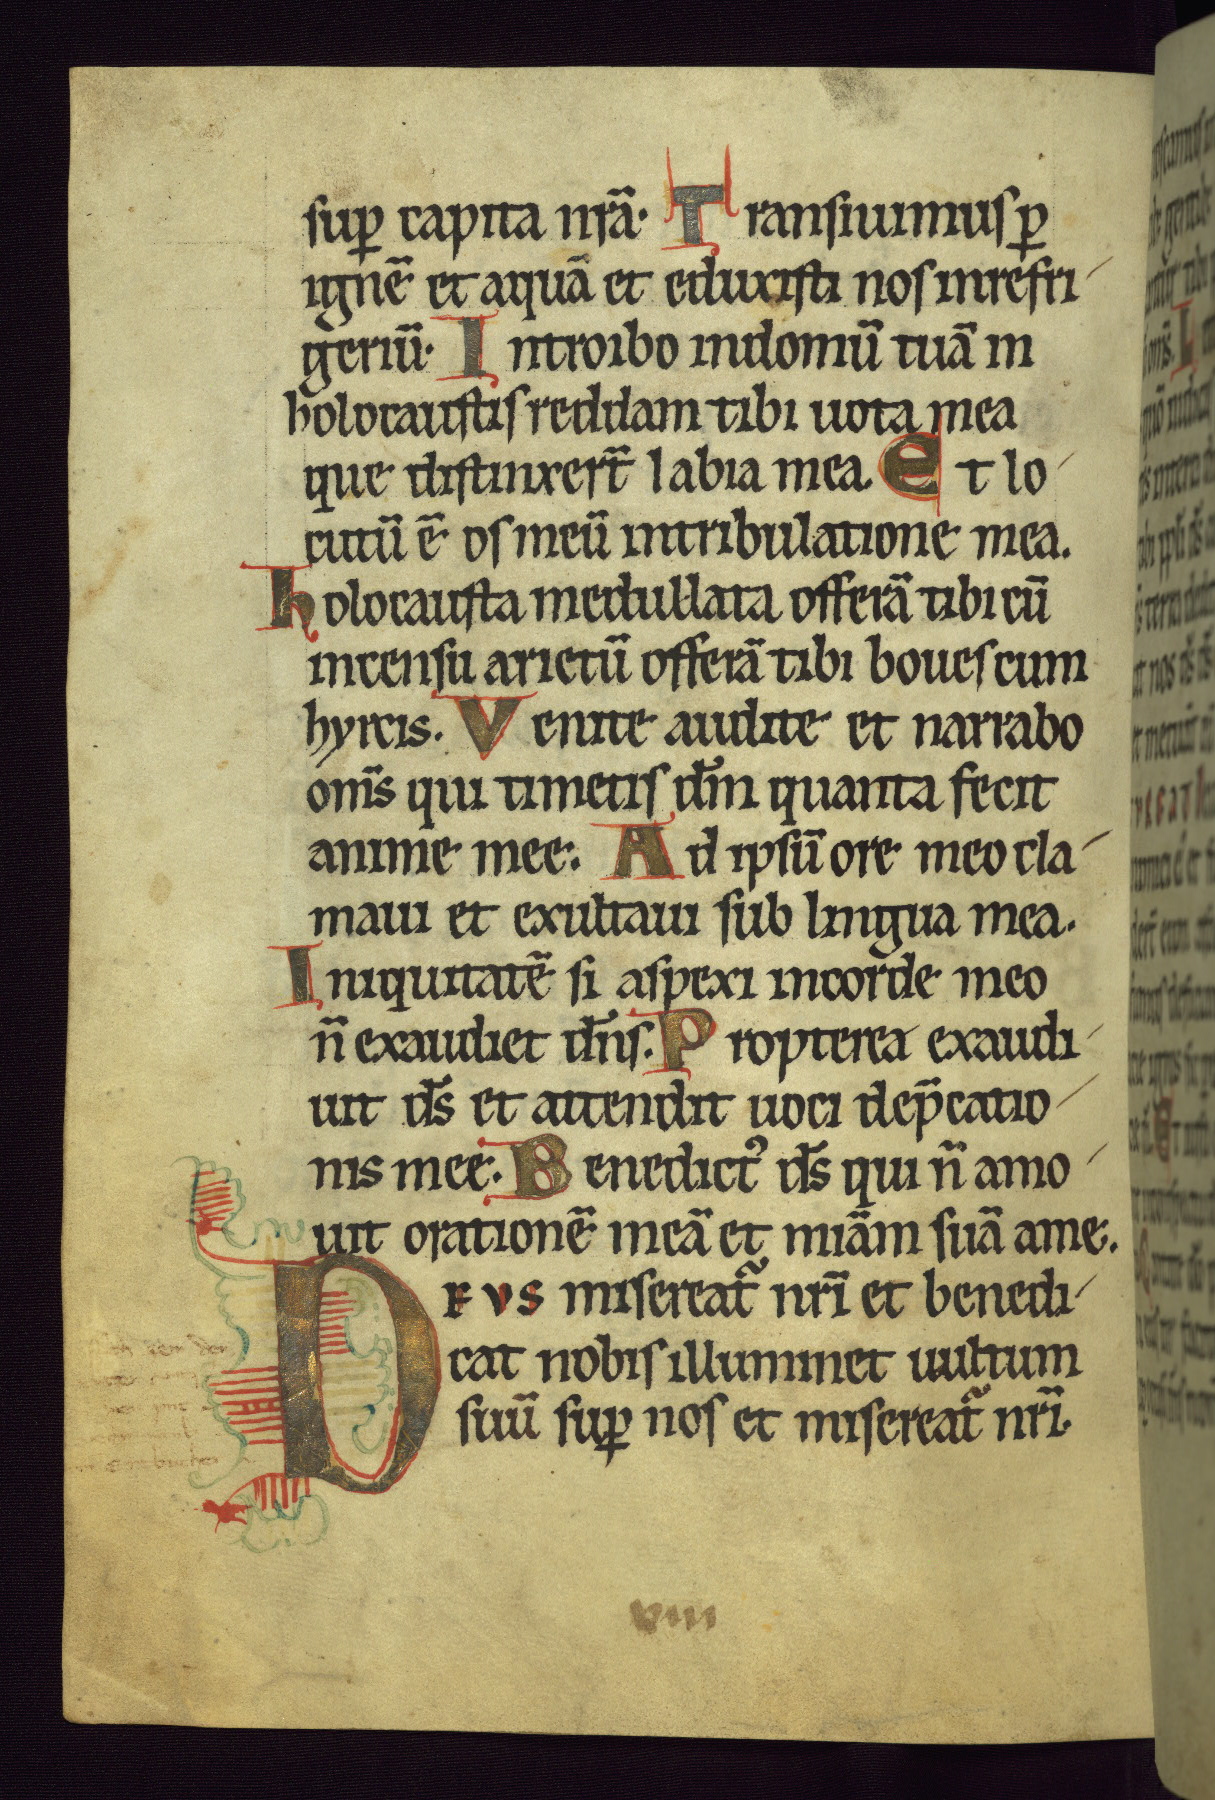 sup capita nr̃a. Transiuimus p
ignē et aquā et eduxisti nos in refri
geriū. Introibo in domū tuā in
holocaustis reddam tibi uota mea
que distinxert̃ labia mea. Et lo
cutū ē os meū in tribulatione mea.
holocausta medullata offerā tibi cū
incensu arietū offerā tibi boues cum
hyrcis. Venite audite et narrabo
om̃s qui timetis dm̃ quanta fecit
anime mee. Ad ipsū ore meo cla
maui et exultaui sub lingua mea.
Iniquitatē si aspexi in corde meo
ñ exaudiet dñs. Propterea exaudi
uit ds̃ et attendit uoci dep̃catio
nis mee. Benedictꝰ ds̃ qui ñ amo
uit orationē meā et miãm suā a me.
DEVS misereat̃ nr̃i et benedi
cat nobis illuminet uultum
suū sup nos et misereat̃ nr̃i.
viii